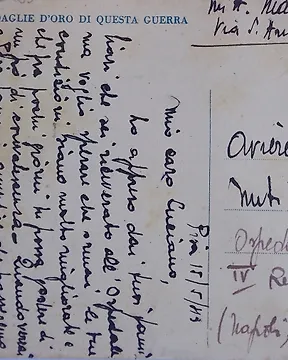 DAGLIE D'ORO DI QUESTA GUERRA
Via S. An
Pisa 15/5/43
mio caro Luciano,
ho appreso dai tuoi fami
liari che sei ricoverato all'Ospedale
ma voglio sperare che ormai le tue
condizioni siano molto migliorate e
che fra pochi giorni tu possa godere di
un po' di convalescenza. Quando verrai
Aviere
Muti
Ospeda
IV Re
(Napoli)